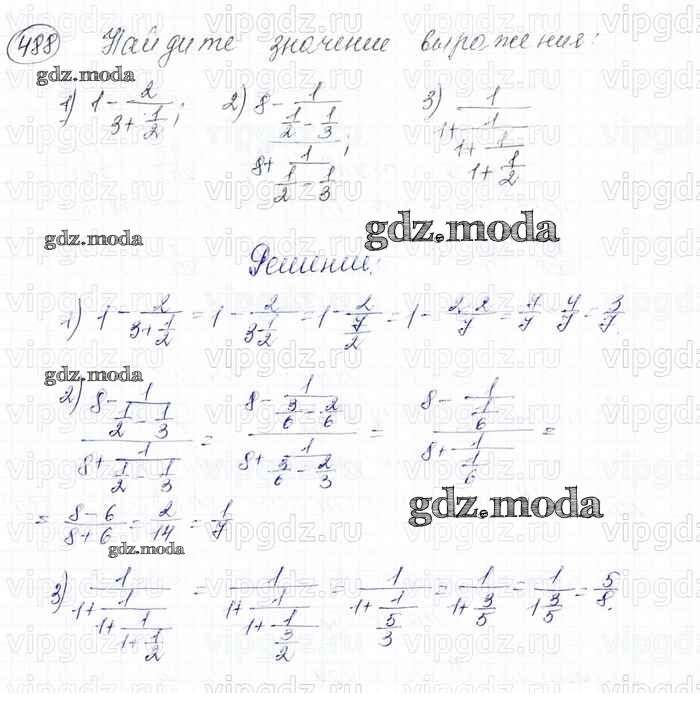 488 Найдите значение выражения:
gdz.moda
1) 1 - 2/(3 + 1/2); 2) (8 - 1/(1/2 - 1/3))/(8 + 1/(1/2 - 1/3)); 3) 1/(1 + 1/(1 + 1/(1 + 1/2)))
gdz.moda gdz.moda
Решение:
1) 1 - 2/(3 + 1/2) = 1 - 2/(3 1/2) = 1 - 2/(7/2) = 1 - (2·2)/7 = 7/7 - 4/7 = 3/7.
gdz.moda
2) (8 - 1/(1/2 - 1/3))/(8 + 1/(1/2 - 1/3)) = (8 - 1/(3/6 - 2/6))/(8 + 1/(3/6 - 2/3)) = (8 - 1/(1/6))/(8 + 1/(1/6)) =
gdz.moda
= (8 - 6)/(8 + 6) = 2/14 = 1/7
gdz.moda
3) 1/(1 + 1/(1 + 1/(1 + 1/2))) = 1/(1 + 1/(1 + 1/(3/2))) = 1/(1 + 1/(5/3)) = 1/(1 + 3/5) = 1/(1 3/5) = 5/8.
vipgdz.ru